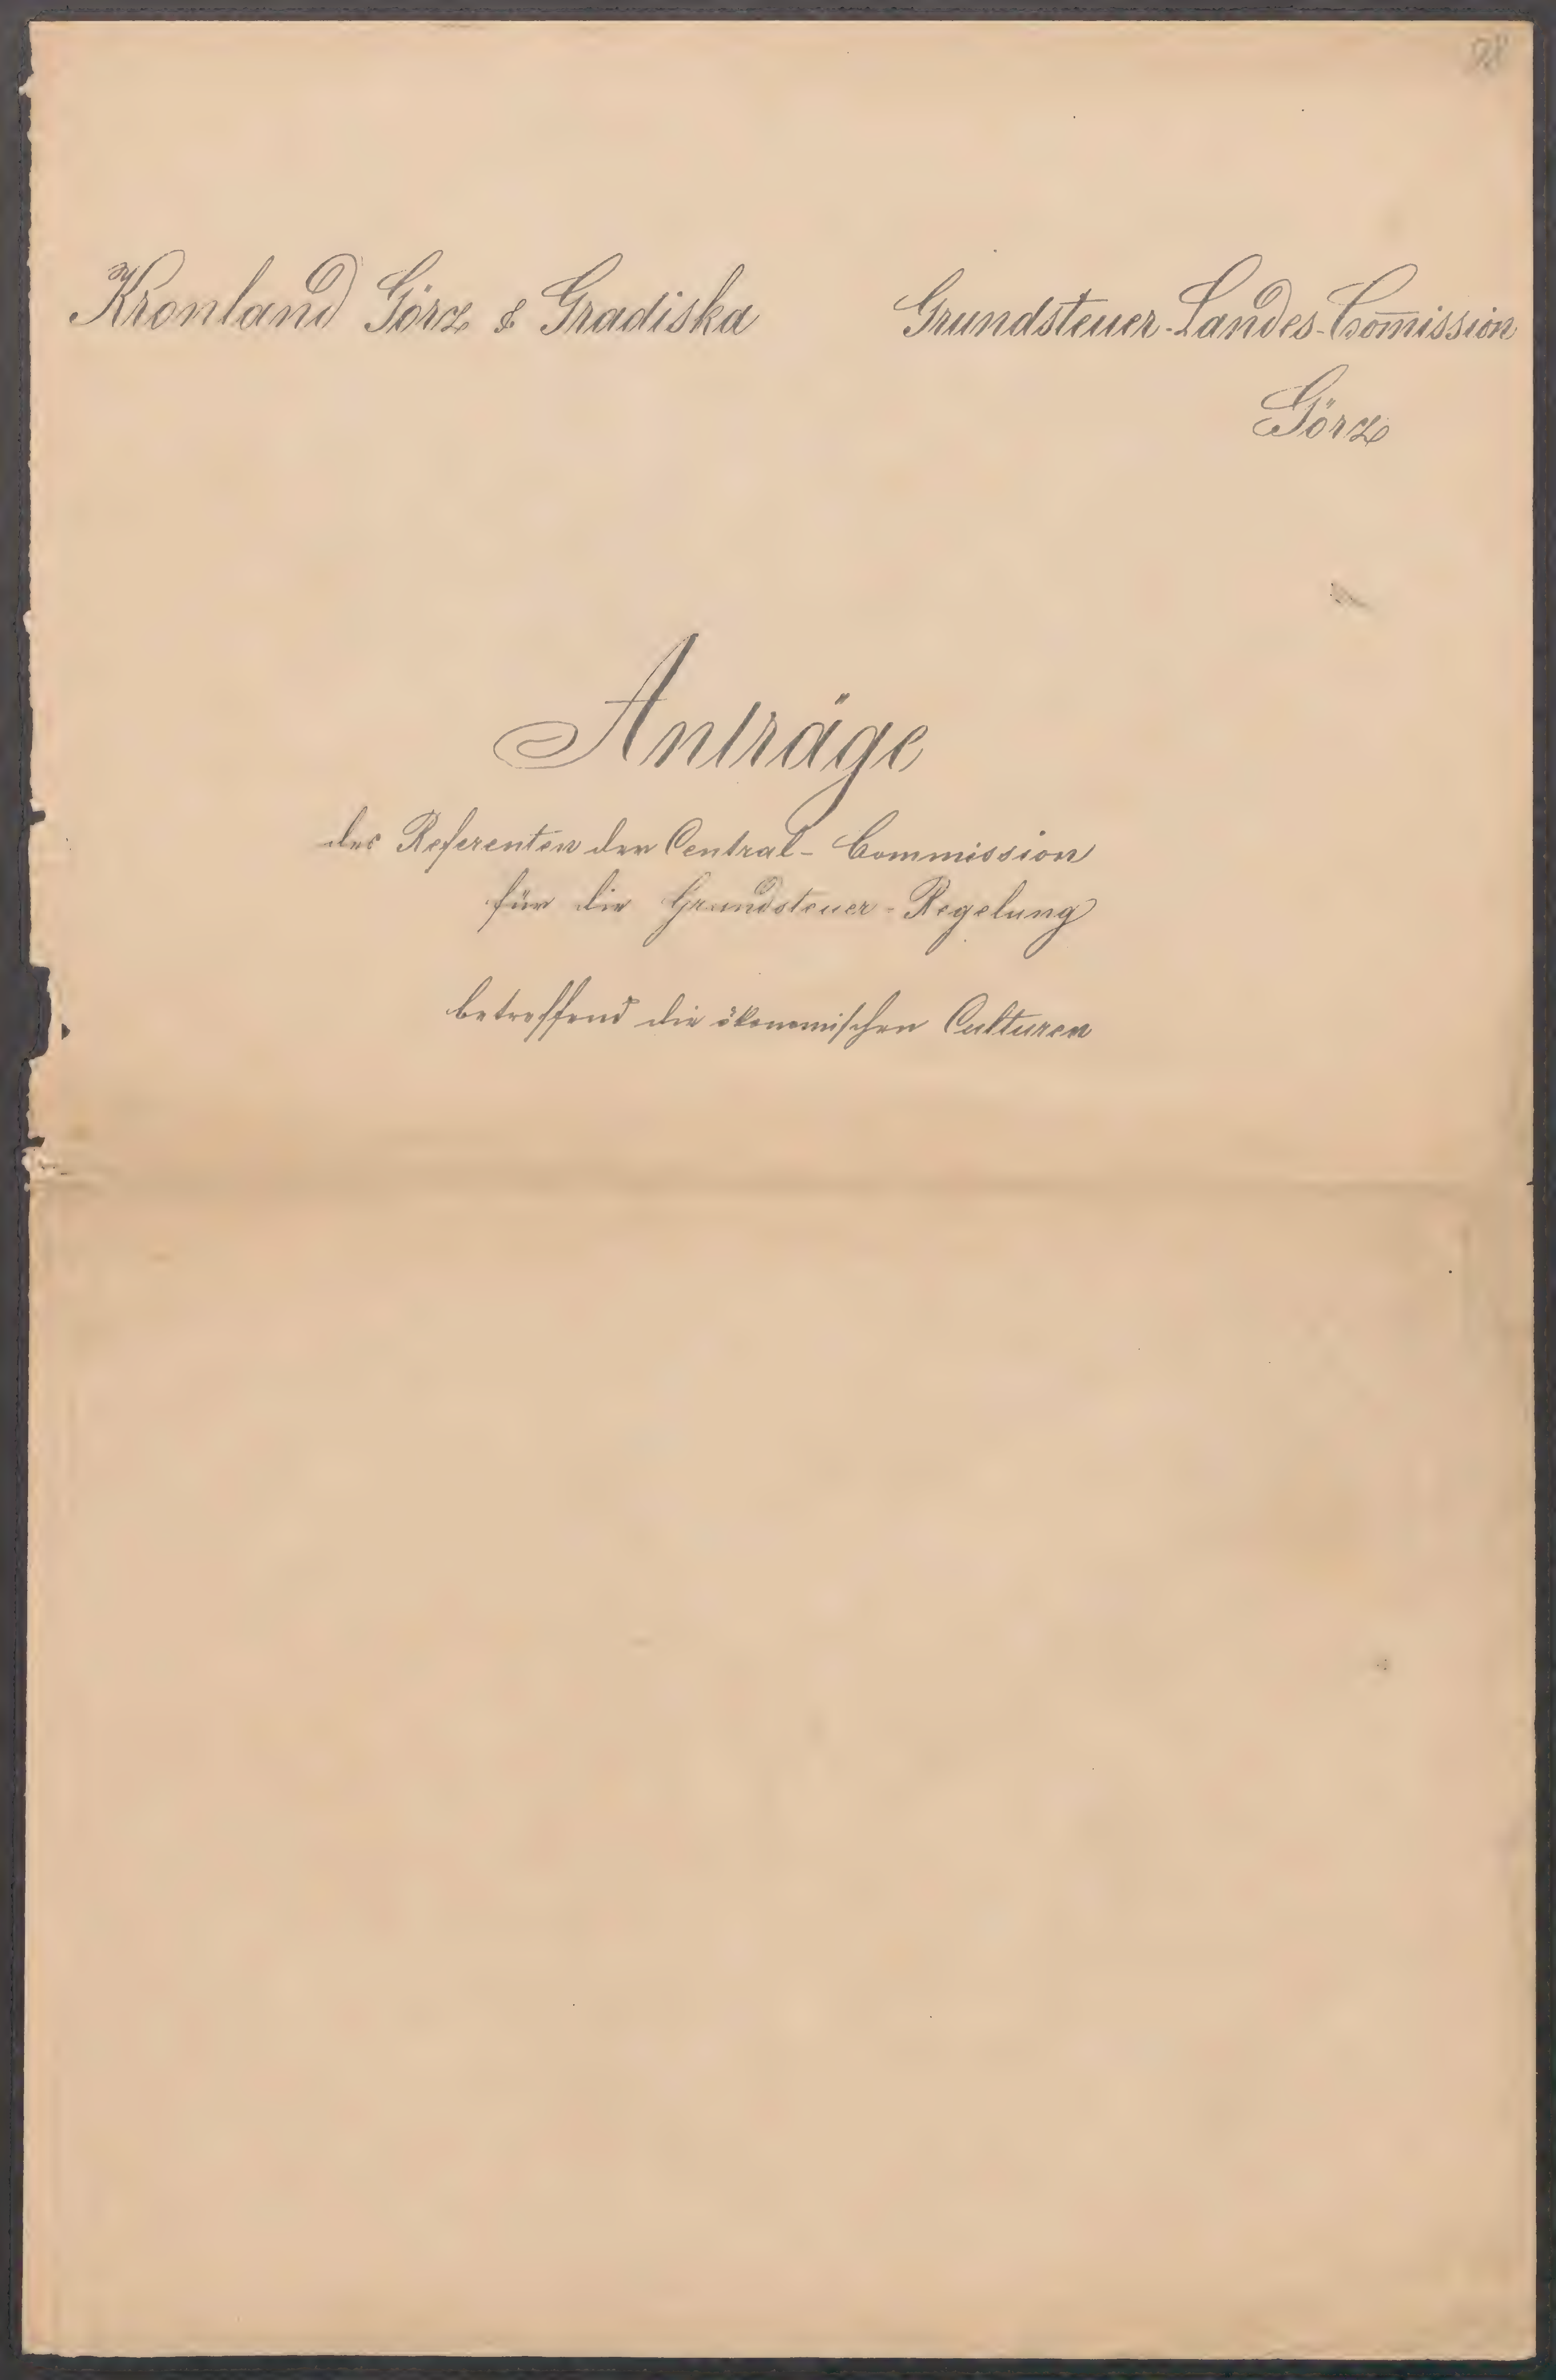 98
Kronland Görz & Gradiska
Grundsteuer-Landes-Com̅ission
Görz
Anträge
des Referenten der Central-Commission
für die Grundsteuer-Regelung
betreffend die ökonomischen Culturen